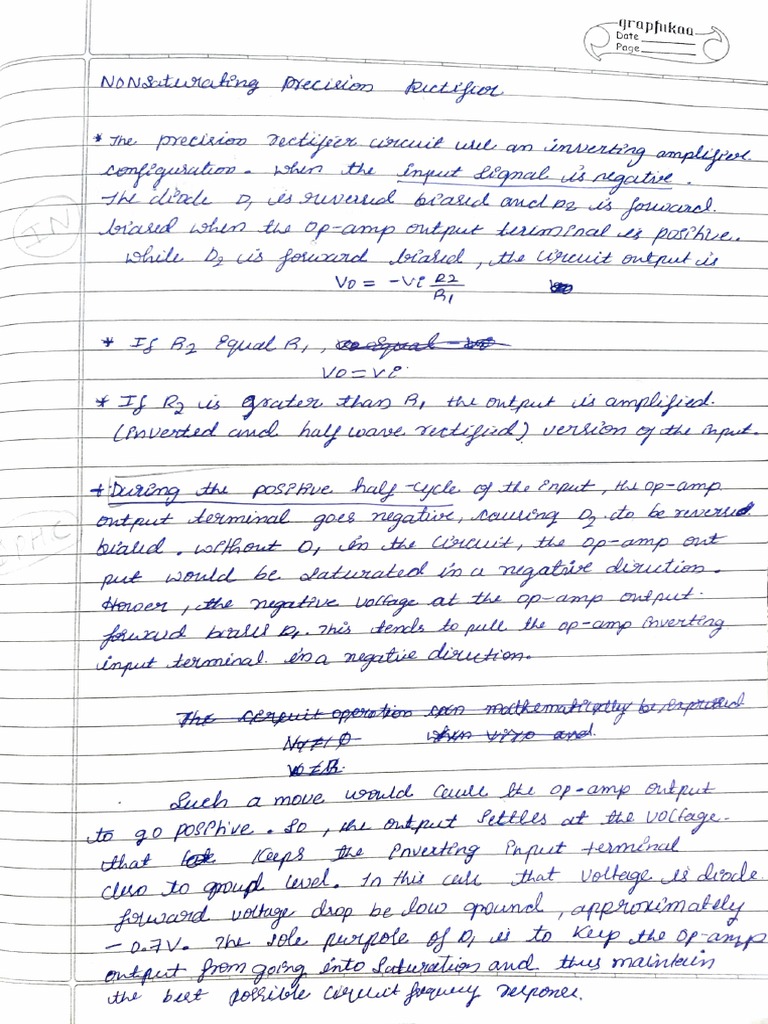 graphikaa
Date
Page
NONSaturating Precision Rectifier
* The precision rectifier circuit use an inverting amplifier
configuration. When the input signal is negative.
The diode D1 is reversed biased and D2 is forward
IN
biased when the op-amp output terminal is positive.
while D2 is forward biased, the circuit output is
Vo = -Vi R2/R1
* If R2 Equal R1,
Vo = Vi
* If R2 is grater than R1 the output is amplified.
(inverted and half wave rectified) version of the input.
* During the positive half-cycle of the input, the op-amp
output terminal goes negative, causing D2 to be reversed
PHC
biased. without D1 in the circuit, the op-amp out
put would be saturated in a negative direction.
Hower, the negative voltage at the op-amp output.
forward biases D1. This tends to pull the op-amp inverting
input terminal in a negative direction.
The circuit operation can mathematically be expressed
and
Such a move would cause the op-amp output
to go positive. So, the output settles at the voltage.
that keeps the inverting input terminal
close to ground level. In this case that voltage is diode
forward voltage drop be low ground, approximately
-0.7V. The sole purpose of D1 is to keep the op-amp
output from going into saturation and thus maintain
the best possible circuit frequency response.